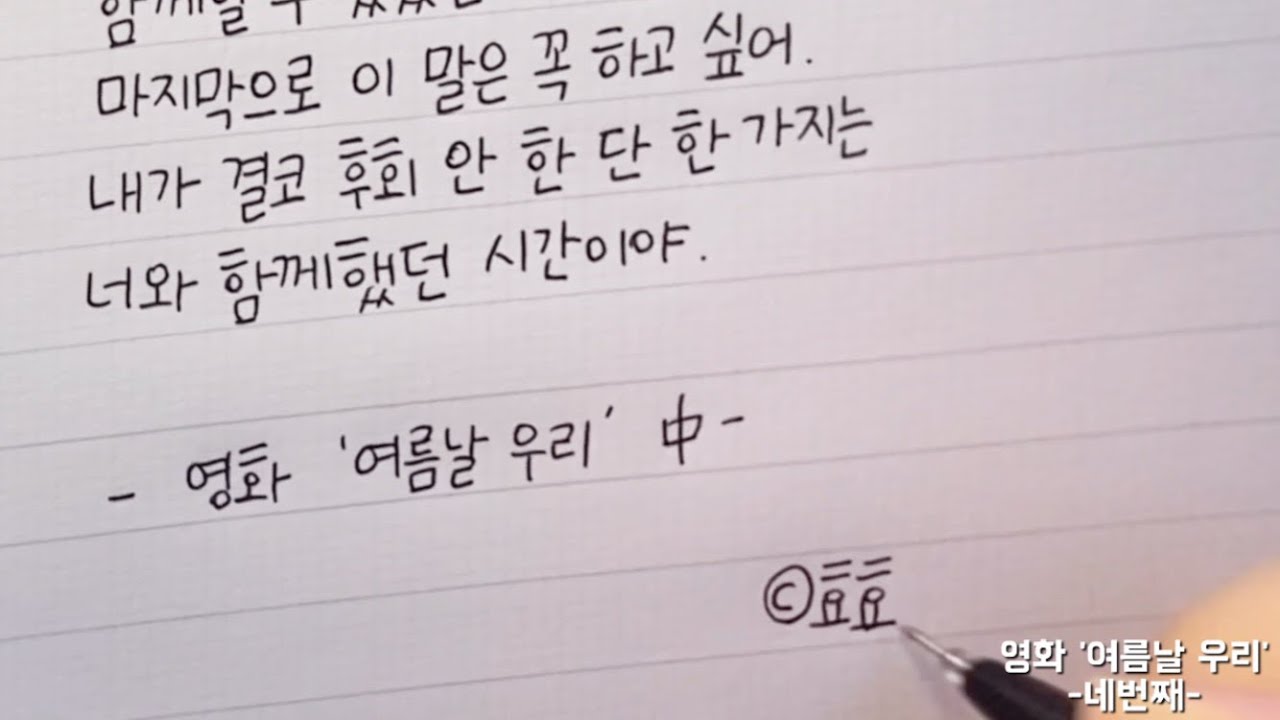 함께할 수 있었
마지막으로 이 말은 꼭 하고 싶어.
내가 결코 후회 안 한 단 한 가지는
너와 함께했던 시간이야.
- 영화 '여름날 우리' 中 -
©효효
영화 '여름날 우리'
-네번째-